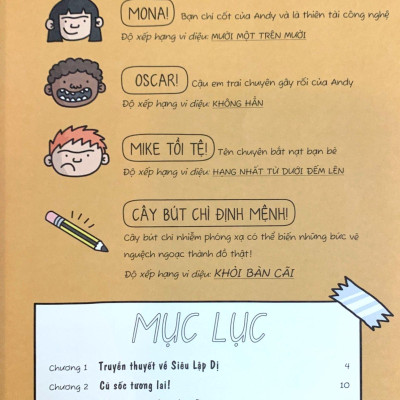 MONA! Bạn chí cốt của Andy và là thiên tài công nghệ
Độ xếp hạng vi diệu: MƯỜI MỘT TRÊN MƯỜI
OSCAR! Cậu em trai chuyên gây rối của Andy
Độ xếp hạng vi diệu: KHÔNG HẲN
MIKE TỒI TỆ! Tên chuyên bắt nạt bạn bè
Độ xếp hạng vi diệu: HẠNG NHẤT TỪ DƯỚI ĐẾM LÊN
CÂY BÚT CHÌ ĐỊNH MỆNH!
Cây bút chì nhiễm phóng xạ có thể biến những bức vẽ
nguệch ngoạc thành đồ thật!
Độ xếp hạng vi diệu: KHỎI BÀN CÃI
MỤC LỤC
Chương 1 Truyền thuyết về Siêu Lập Dị 4
Chương 2 Cú sốc tương lai! 10